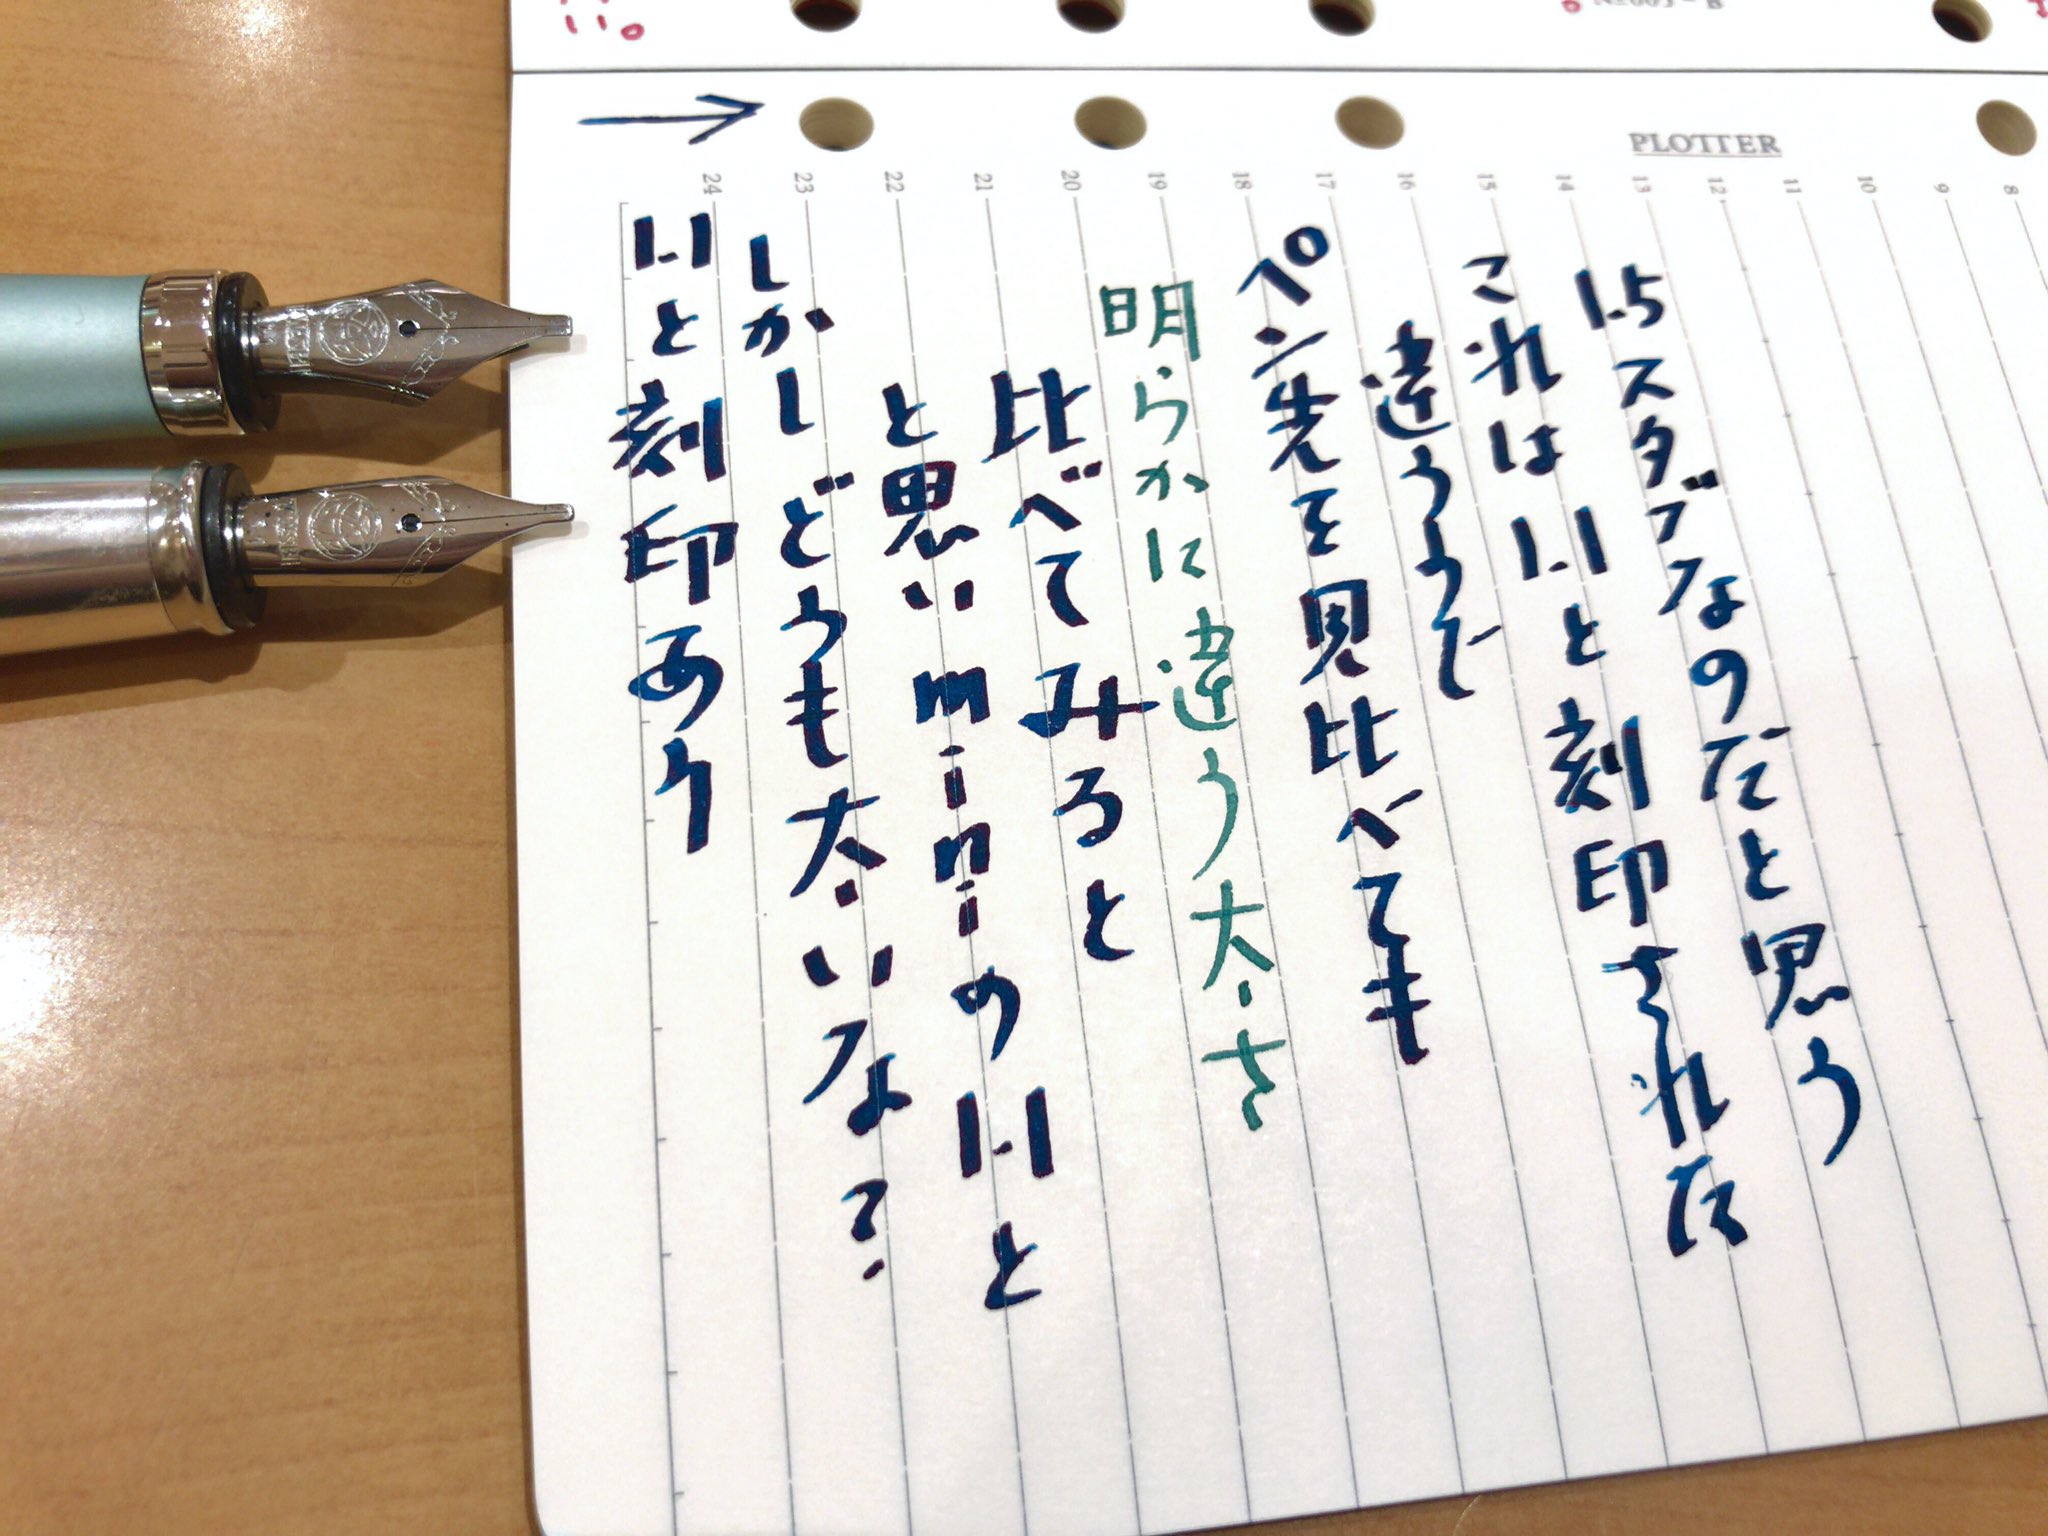 PLOTTER
24 23 22 21 20 19 18 17 16 15 14 13 12 11 10 9 8
1.1と刻印あり
しかしどうも太いなァ、
と思いminiの1.1と
比べてみると
明らかに違う太さ
ペン先を見比べても
違うようで
これは1.1と刻印された
1.5スタブなのだと思う